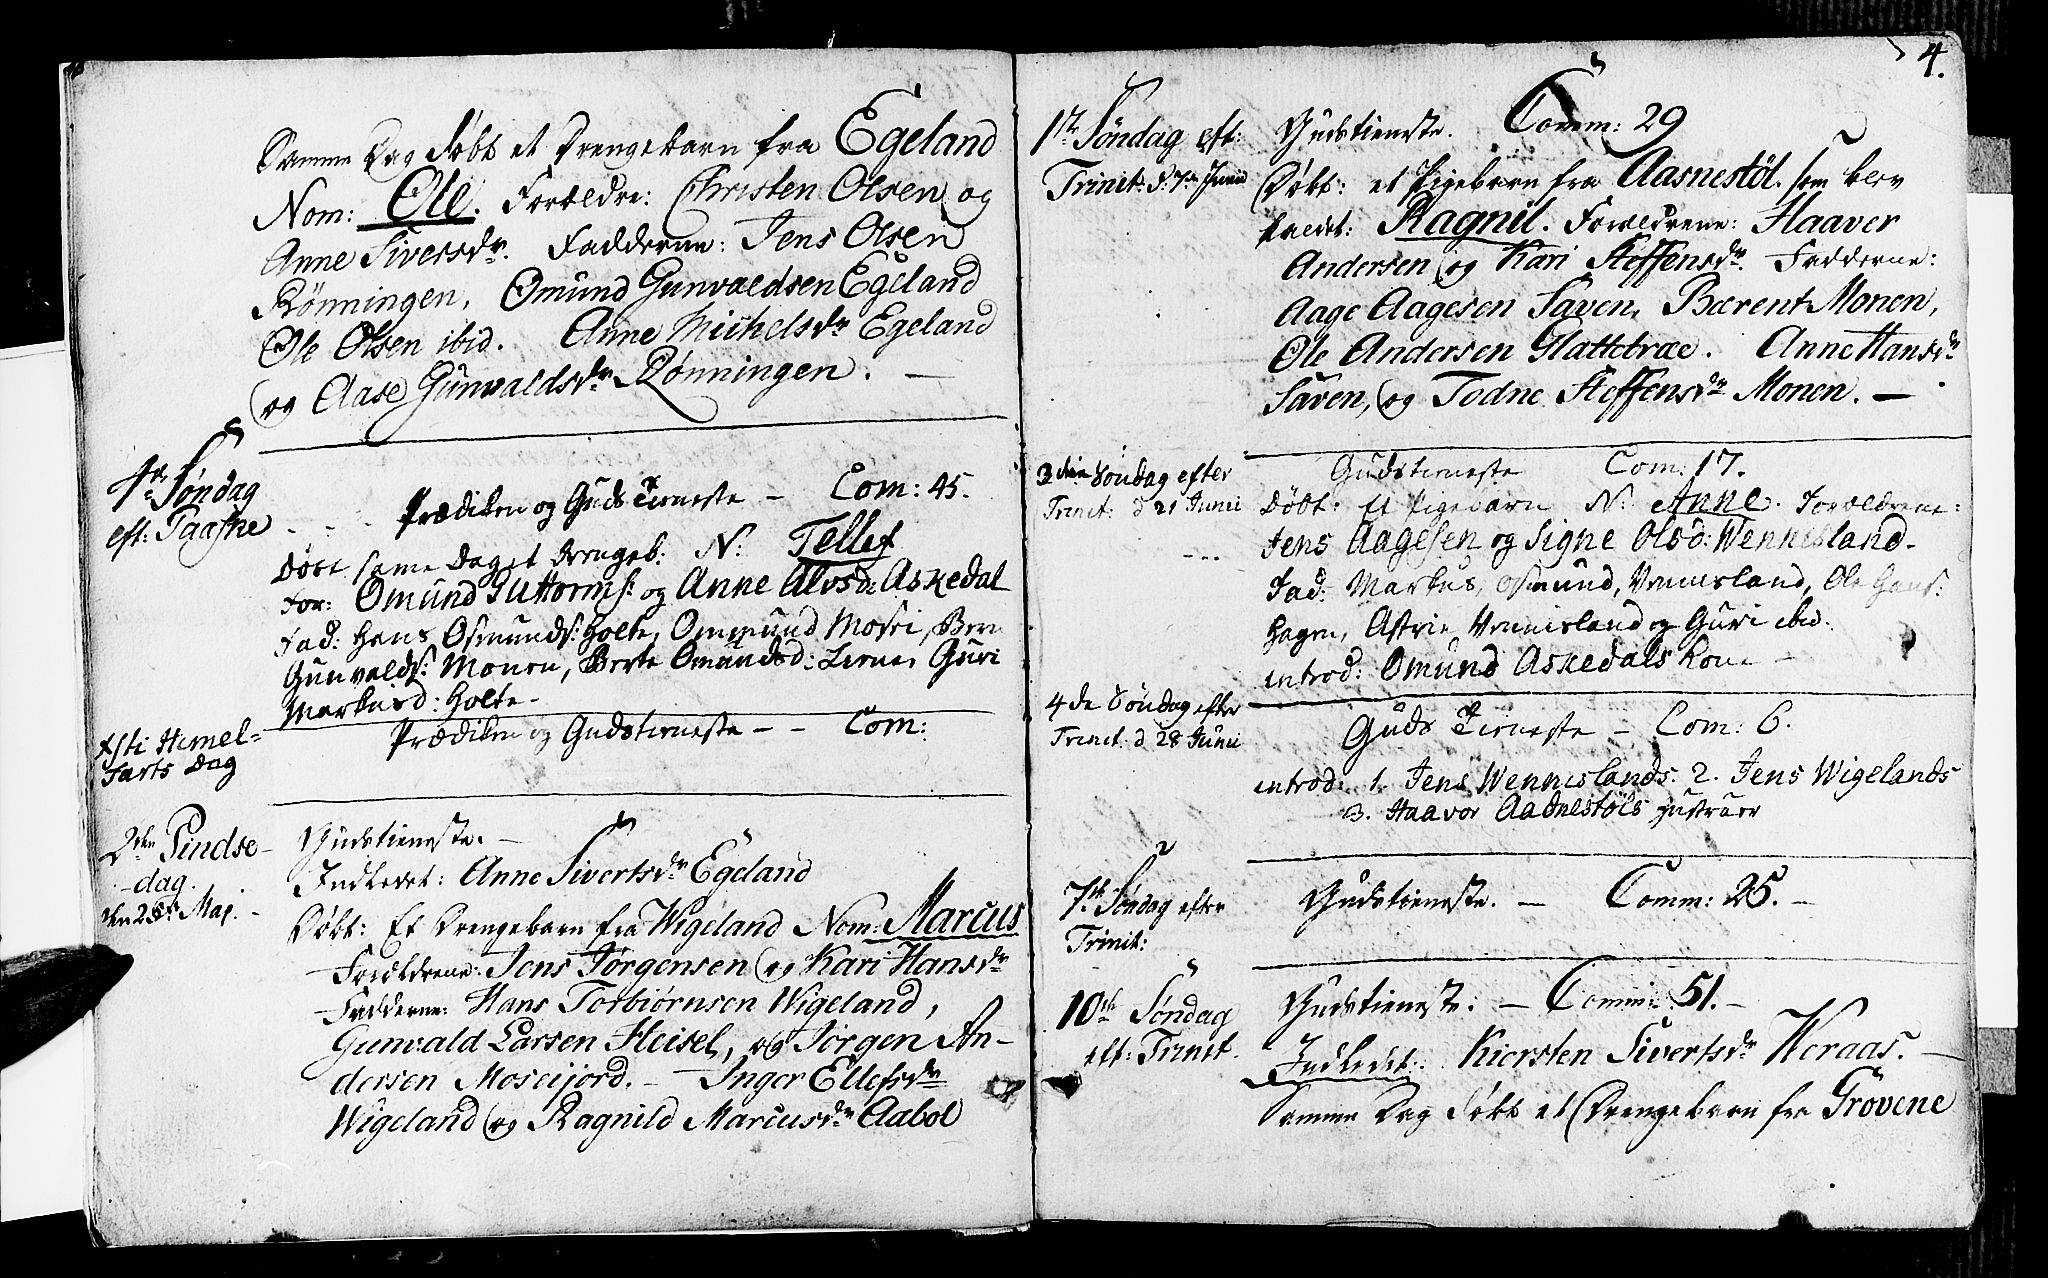 Samme Dag døbt et Drengebarn fra Egeland
Nom: Ole. Forældre: Christen Olsen og
Anne Siversdr. Fadderne: Jens Olsen
Rönningen, Omund Gunvaldsen Egeland
Ole Olsen ibid. Anne Michelsdr Egeland
og Aase Gunvaldsdr Rönningen. —
4de Søndag
eft: Paaske
Prædiken og Guds Tieneste — Com: 45.
Döbt same Dag et Drengeb: N: Tellef
For: Omund Guttorms: og Anne Alvsd: Askedal
Fad: Hans Osmunds: Holte, Ommund Mosei, Bern
Gunvalds: Monen, Berte Omundsd: Liene, Guri
Markusd: Holte —
Xsti Himel-
farts Dag
Prædiken og Gudstieneste — — Com:
2den Pindse-
-dag.
den 25de Maj.
Gudstieneste. —
Indledet: Anne Sivertsdr Egeland
Døbt: Et Drengebarn fra Wigeland Nom: Marcus
Forældrene: Jens Jørgensen og Kari Hansdr
Fadderne: Hans Torbiørnsen Wigeland,
Gunvald Larsen Heisel, og Jørgen An-
dersen Moseijord. — Inger Ellefsdr
Wigeland og Ragnild Marcusdr Aabol
4.
1ste Søndag eft:
Trinit: d: 7de Junii
Gudstieneste. Comm: 29
Døbt: et Pigebarn fra Aasnestöl. som blev
kaldet: Ragnil. Forældrene: Haaver
Andersen og Kari Steffensdr. Fadderne:
Aage Aagesen Saven, Bærent Monen,
Ole Andersen Glattebræ. Anne Hansdr
Saven, og Todne Steffensdr Monen. —
3die Söndag efter
Trinit: d 21 Junii
Gudstieneste Com: 17.
Döbt: Et Pigebarn N: Anne. Forældrene:
Jens Aagesen og Signe Olsd: Wennisland.
Fad: Markus, Osmund, Vennisland, Ole Hans:
Hagen, Astrie Vennisland og Guri ibid:
introd: Omund Askedals Kone —
4de Söndag efter
Trinit: d 28 Junii
Guds Tieneste — Com: 6.
introd: 1. Jens Wennislands. 2. Jens Wigelands
3. Haavor Aadnestöls Hustruer
7de Søndag efter
Trinit:
Gudstieneste. — Comm: 25. —
10de Søndag
eft: Trinit.
Gudstieneste: — Comm: 51. —
Indledet: Kiersten Sivertsdr Weraas. —
Samme Dag døbt et Drengebarn fra Grovene